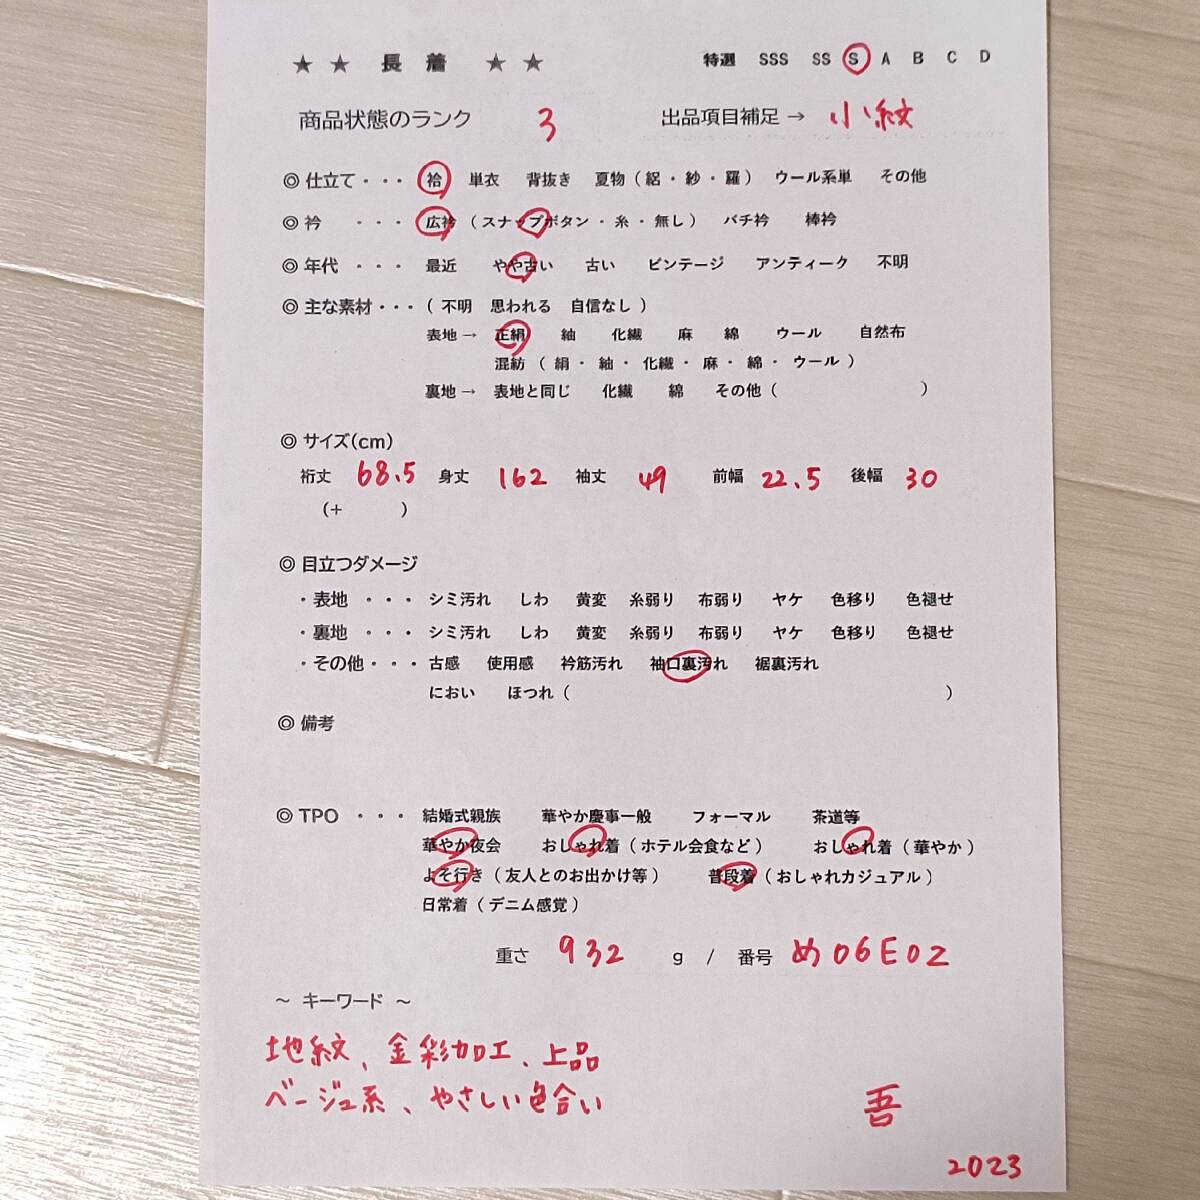 ★ ★ 長 着 ★ ★ 特選 SSS SS S A B C D
商品状態のランク 3 出品項目補足 → 小紋
◎ 仕立て・・・ 袷 単衣 背抜き 夏物(絽・紗・羅) ウール系単 その他
◎ 衿 ・・・ 広衿 (スナップボタン・糸・無し) バチ衿 棒衿
◎ 年代 ・・・ 最近 やや古い 古い ビンテージ アンティーク 不明
◎ 主な素材・・・ (不明 思われる 自信なし)
表地 → 正絹 紬 化繊 麻 綿 ウール 自然布
混紡 (絹・紬・化繊・麻・綿・ウール)
裏地 → 表地と同じ 化繊 綿 その他 ( )
◎ サイズ(cm)
裄丈 68.5 身丈 162 袖丈 49 前幅 22.5 後幅 30
(+ )
◎ 目立つダメージ
・表地 ・・・ シミ汚れ しわ 黄変 糸弱り 布弱り ヤケ 色移り 色褪せ
・裏地 ・・・ シミ汚れ しわ 黄変 糸弱り 布弱り ヤケ 色移り 色褪せ
・その他・・・ 古感 使用感 衿筋汚れ 袖口裏汚れ 裾裏汚れ
におい ほつれ ( )
◎ 備考
◎ TPO ・・・ 結婚式親族 華やか慶事一般 フォーマル 茶道等
華やか夜会 おしゃれ着(ホテル会食など) おしゃれ着(華やか)
よそ行き(友人とのお出かけ等) 普段着(おしゃれカジュアル)
日常着(デニム感覚)
重さ 932 g / 番号 め06E02
~ キーワード ~
地紋、金彩加工、上品
ベージュ系、やさしい色合い
吾
2023